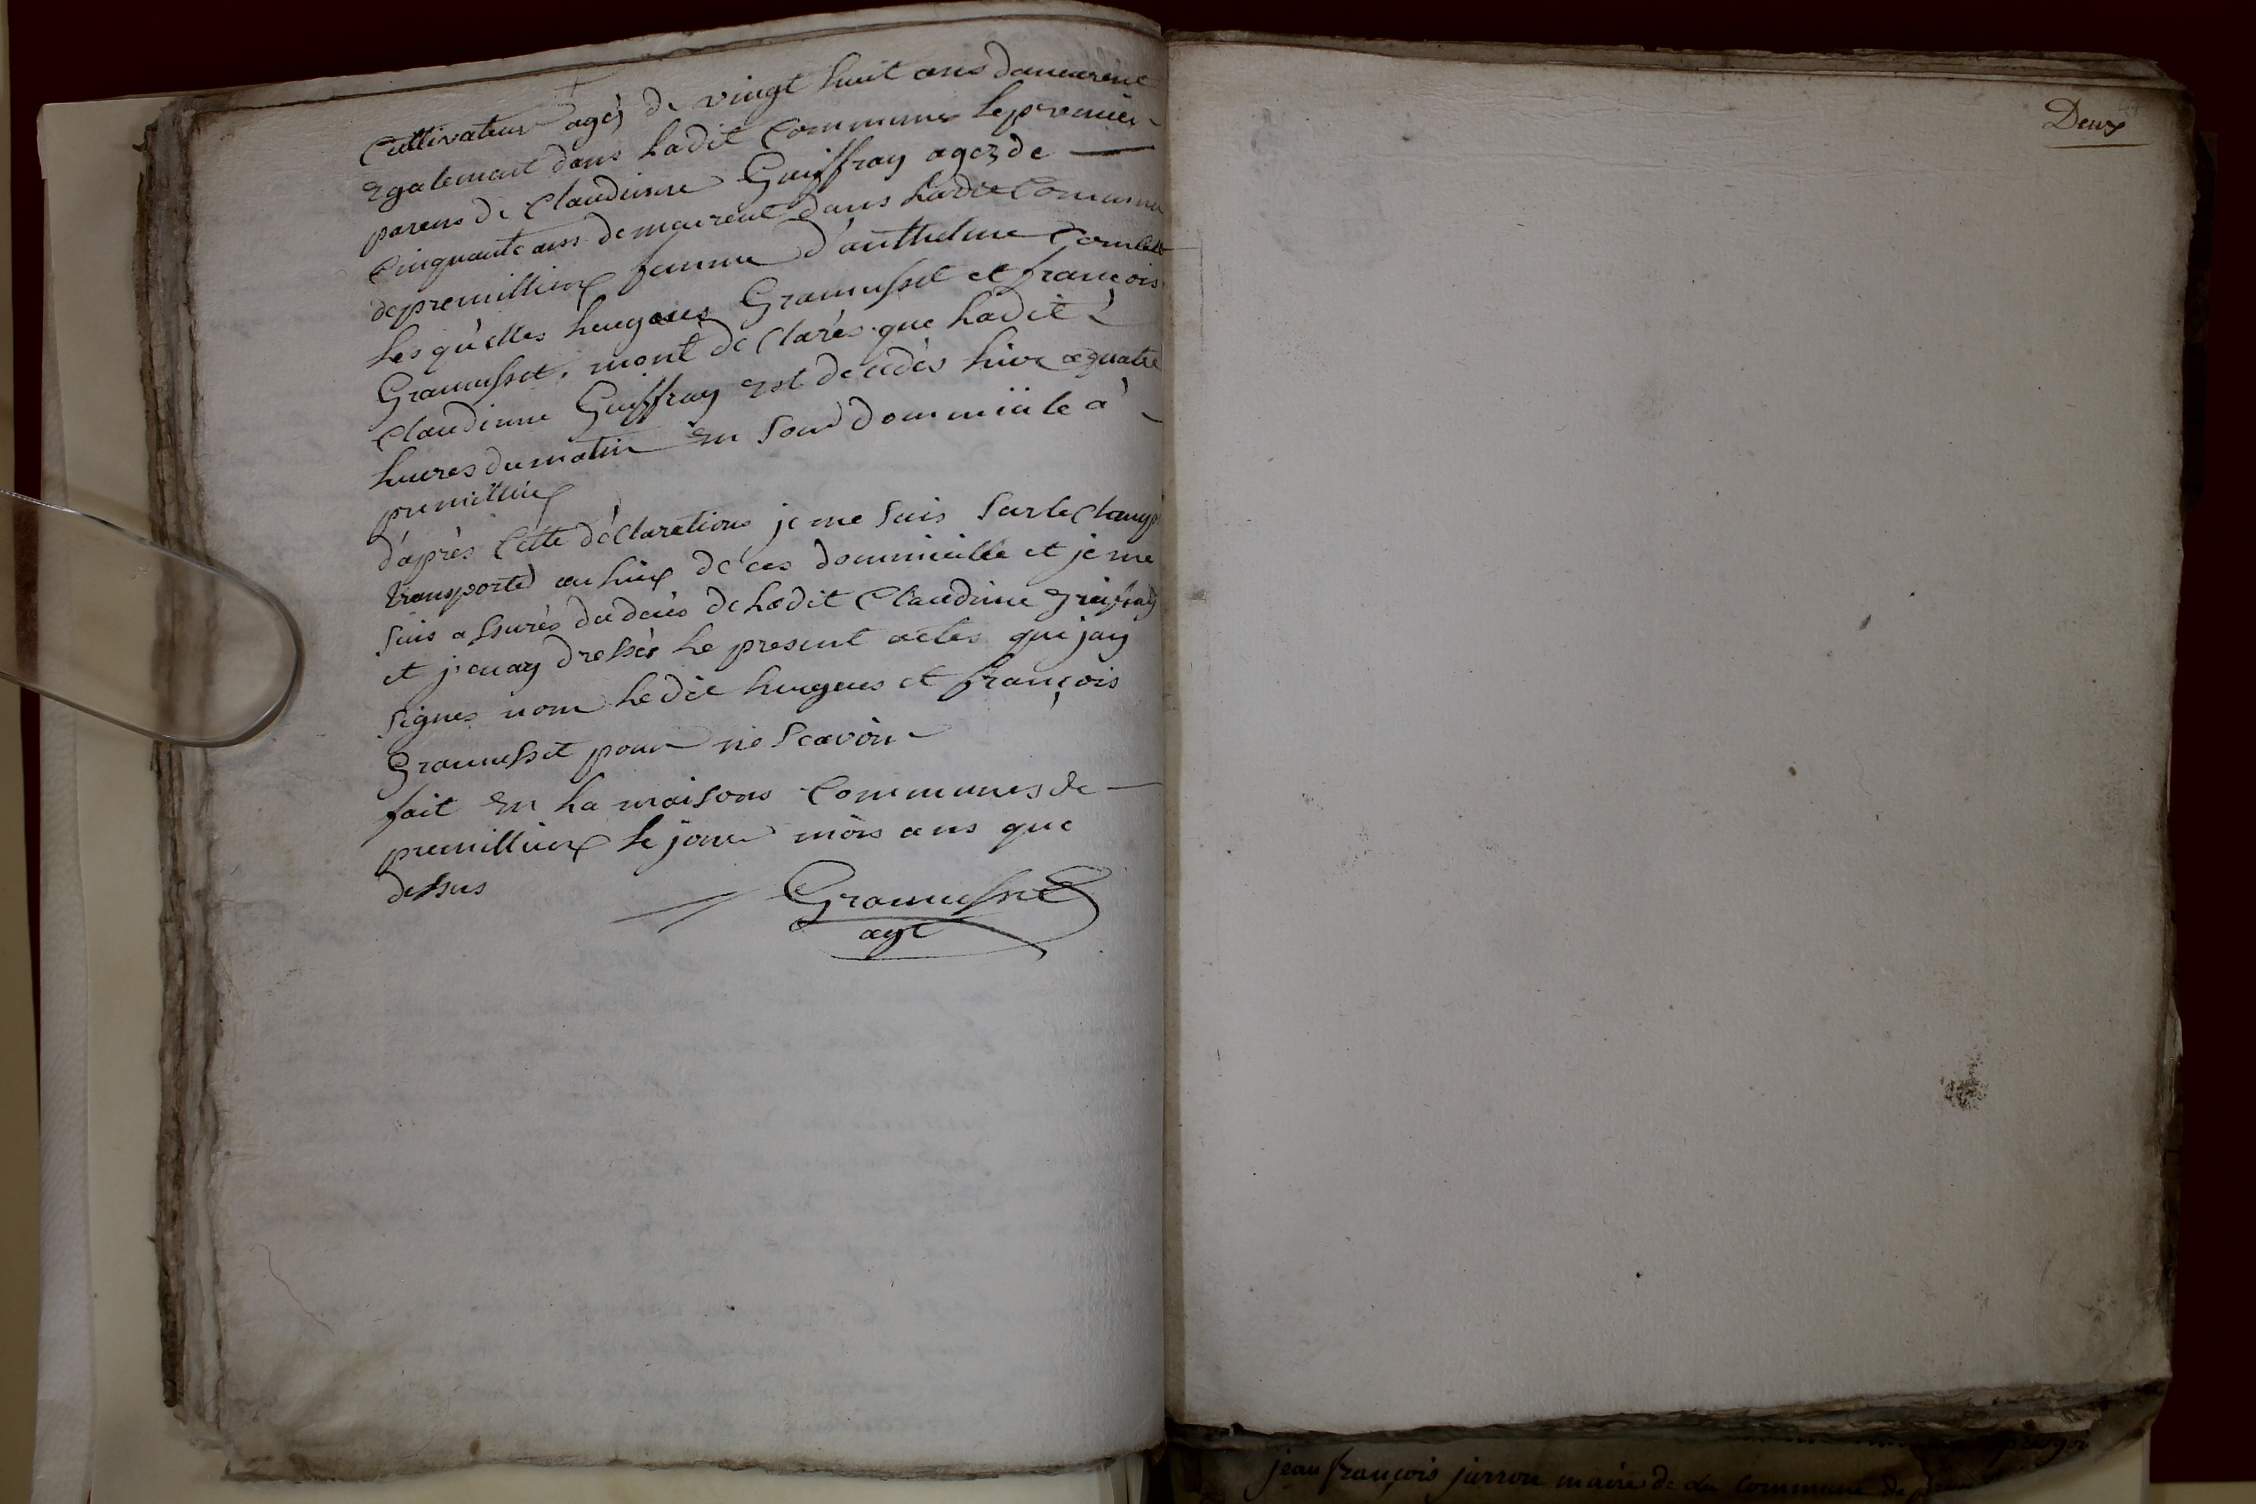 Cultivateur agéz de vingt huit ans demeurent
Egalement dans Ladit Commune Le premier
parens de Claudinne Guiffray agez de
Cinquante ans demeurent dans Ladit Commune
de premillieux femme d'anthelme
Les quelles hugues Gramusset et françois
Gramusset, mont déClarés que Ladit
Claudinne Guiffray Est décédés hier a quatre
heures du matin En Son dommiile à
premillieux
d'après Cette déClaration je me Suis Sur le Champ
transporté au Lieux de ces dommicille et je me
Suis assurés du décès de Ladit Claudinne guiffray
et j'enay dressés Le present actes que jay
Signes nom Ledit hugues et françois
Gramusset pour ne Scavoir
fait En La maisons Communes de
premillieux Le jour mois ans que
dessus
Gramusset
agt
Deux
jean françois jurron maire de la Commune de